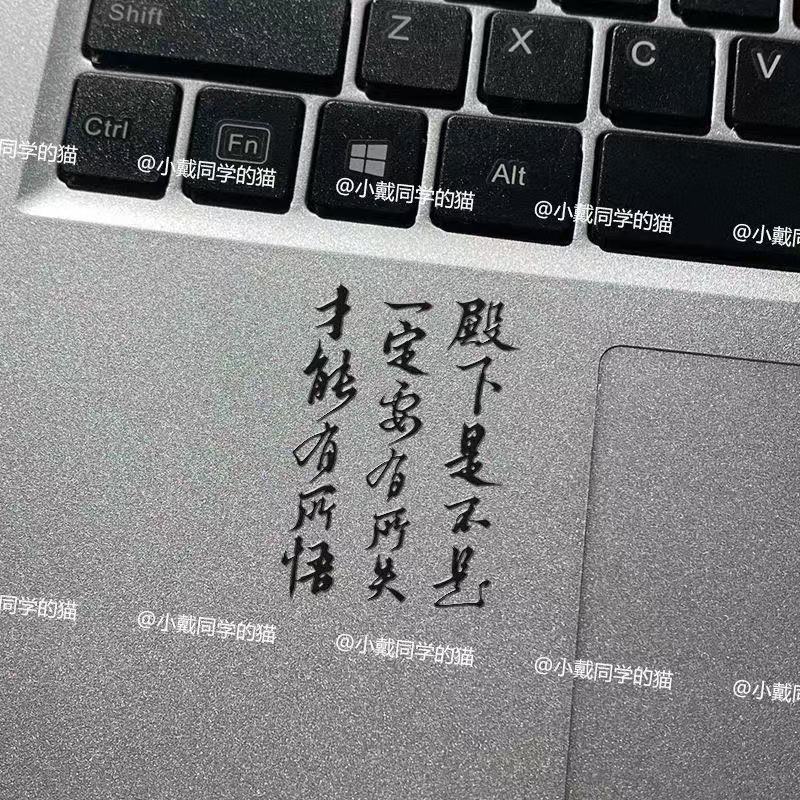 Shift
Z
X
C
V
Ctrl
Fn
Alt
同学的猫
@小戴同学的猫
@小戴同学的猫
@小戴同学的猫
@小戴
殿下是不是
一定要有所失
才能有所悟
同学的猫
@小戴同学的猫
@小戴同学的猫
@小戴同学的猫
@小戴